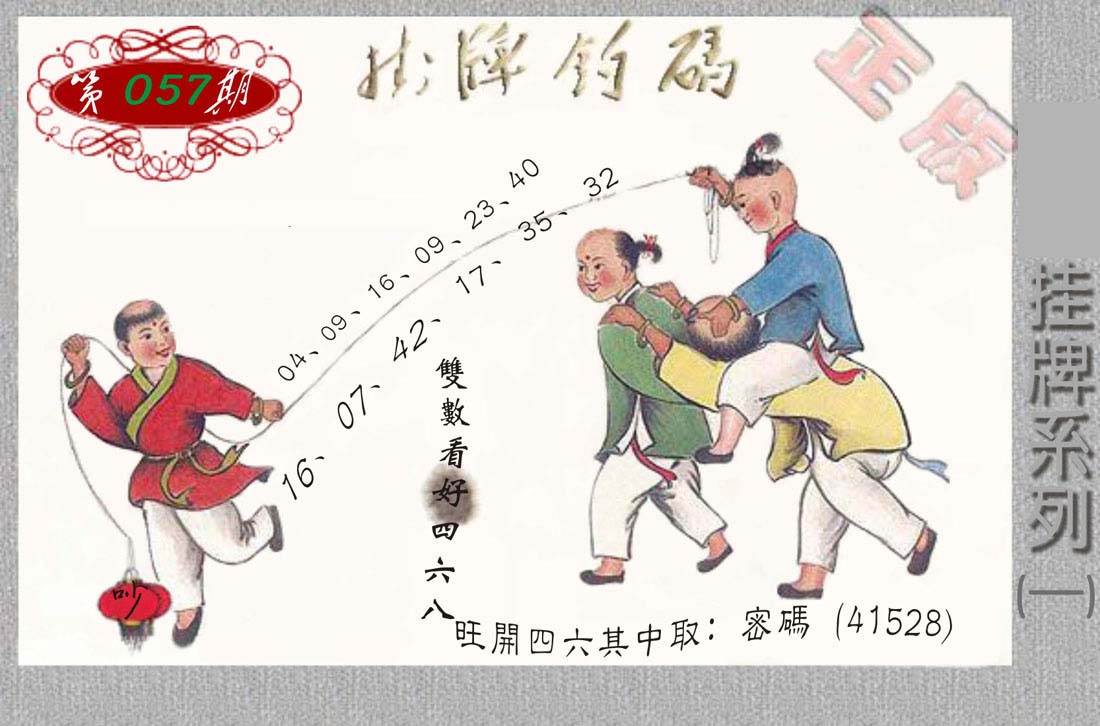 第057期
掛牌釣碼
正版
04、09、16、09、23、40
16、07、42、17、35、32
雙數看好四六八
旺開四六其中取：密碼（41528）
吵
挂牌系列（一）